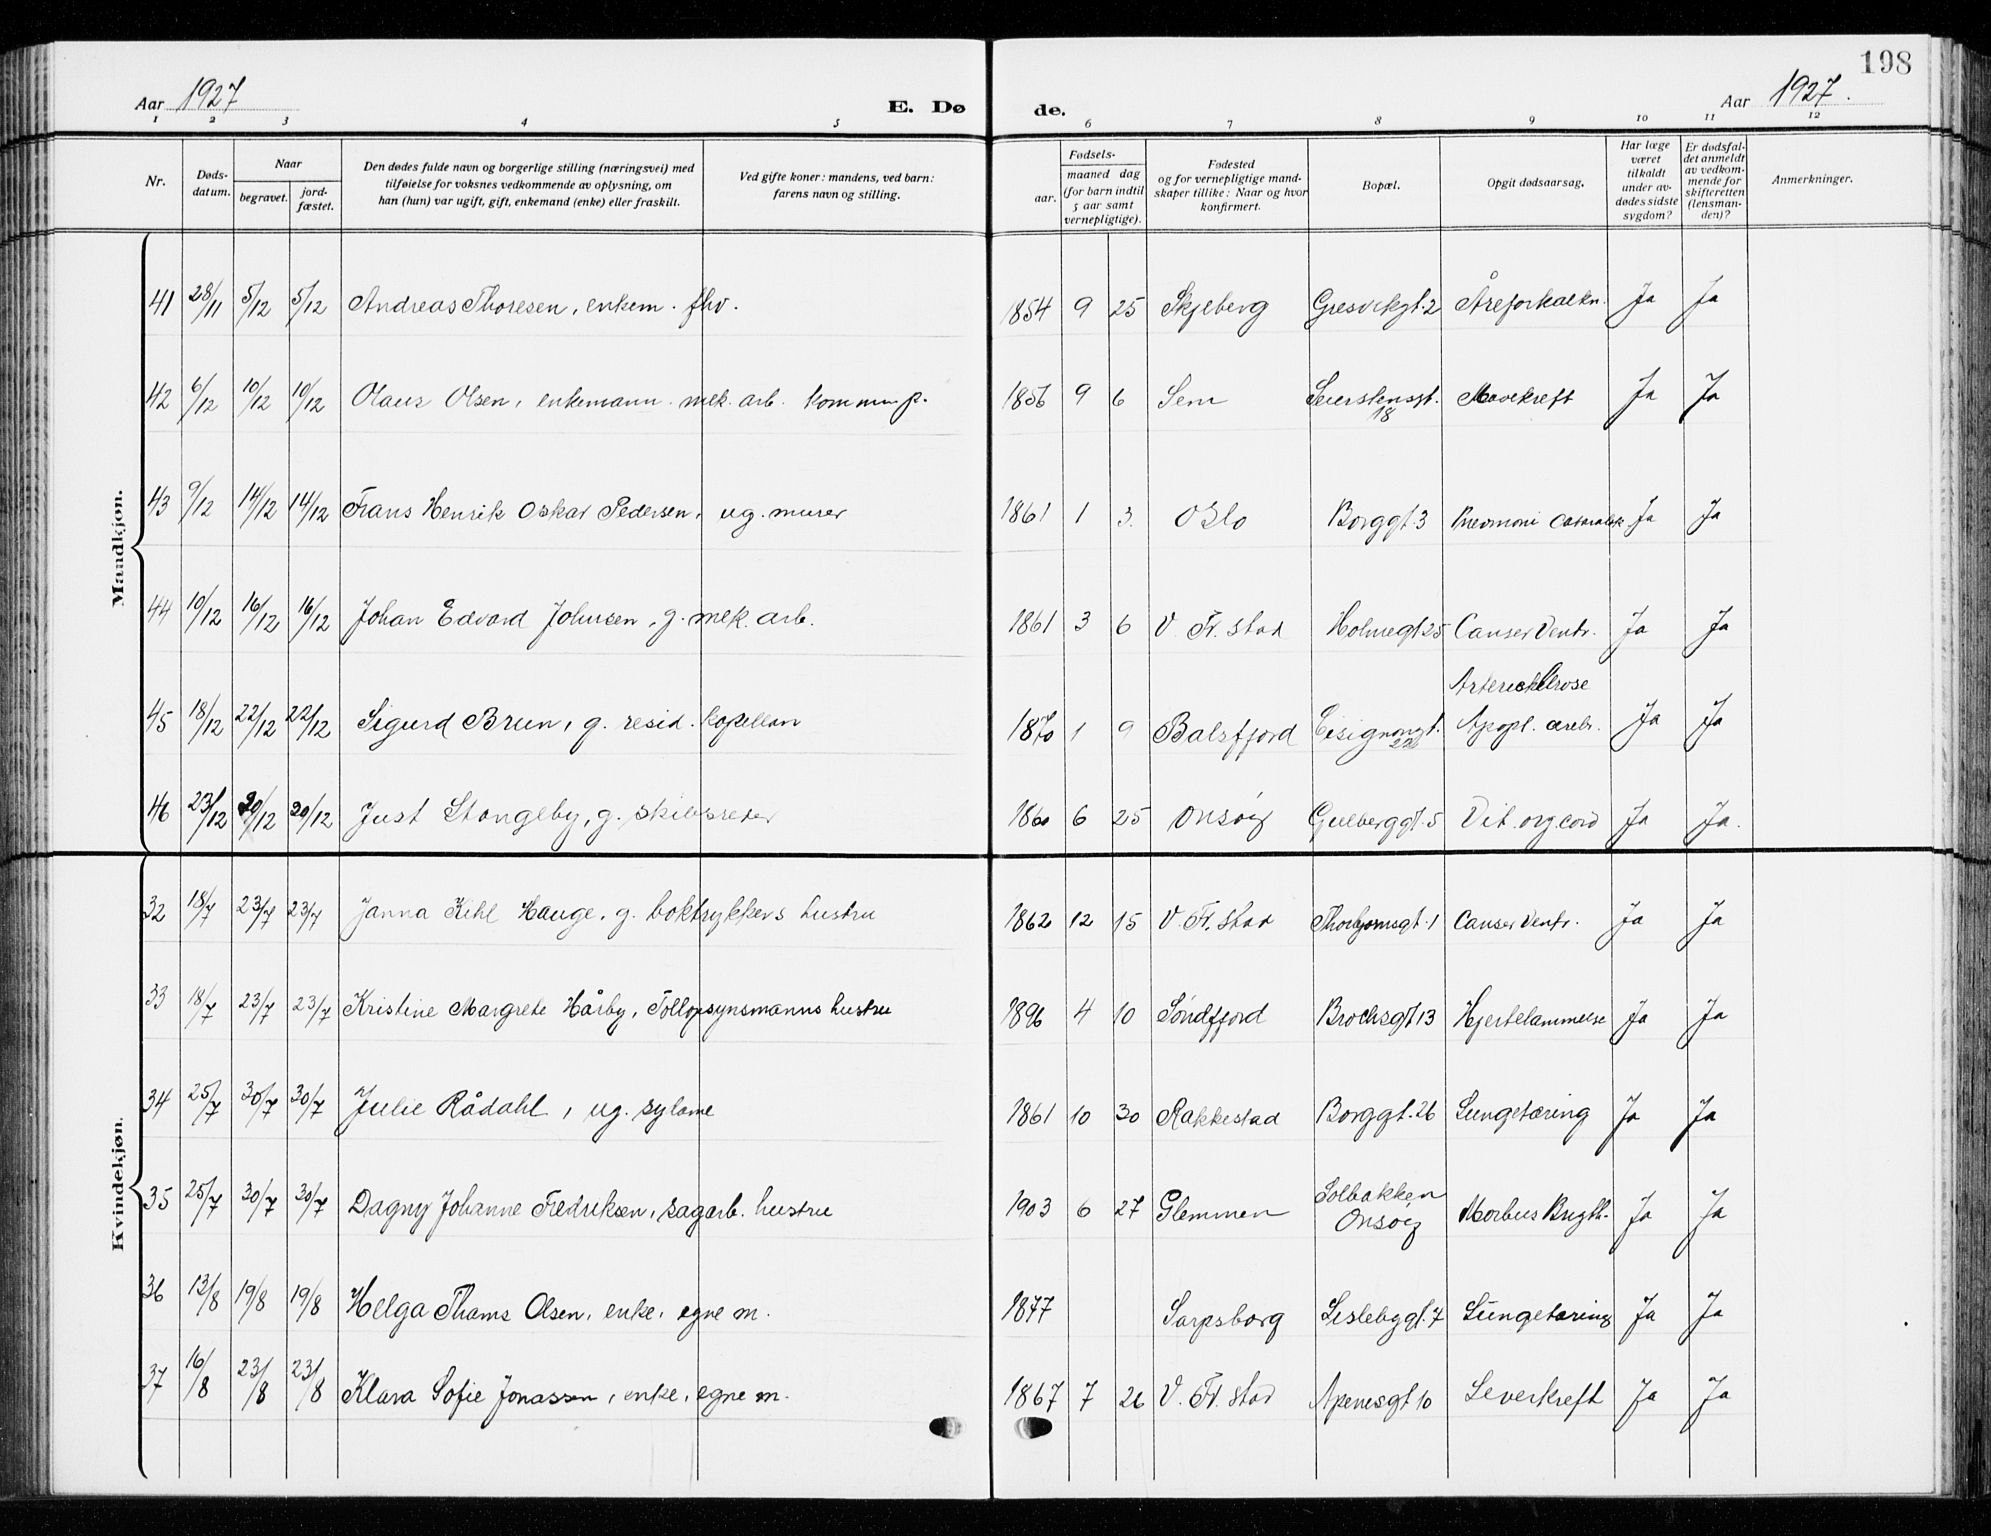 198
Aar 1927 E. Døde. Aar 1927.
1 2 3 4 5 6 7 8 9 10 11 12
Nr.
Døds-
datum.
Naar
begravet.
jord-
fæstet.
Den dødes fulde navn og borgerlige stilling (næringsvei) med
tilføielse for voksnes vedkommende av oplysning, om
han (hun) var ugift, gift, enkemand (enke) eller fraskilt.
Ved gifte koner: mandens, ved barn:
farens navn og stilling.
Fødsels-
aar.
maaned dag
(for barn indtil
5 aar samt
vernepligtige).
Fødested
og for vernepligtige mand-
skaper tillike: Naar og hvor
konfirmert.
Bopæl.
Opgit dødsaarsag.
Har læge
været
tilkaldt
under av-
dødes sidste
sygdom?
Er dødsfal-
det anmeldt
av vedkom-
mende for
skifteretten
(lensman-
den)?
Anmerkninger.
Mandkjøn.
41 28/11 5/12 5/12 Andreas Thoresen, enkem. fhv. 1854 9 25 Skjeberg Gresvikgt. 2 Åreforkalkn. Ja Ja
42 6/12 10/12 10/12 Olaus Olsen, enkemann. mek. arb. komm. p. 1856 9 6 Sem Seierstensgt. 18 Mavekreft Ja Ja
43 9/12 14/12 14/12 Frans Henrik Oskar Pedersen, ug. murer 1861 1 3. Oslo Borggt. 3 Pneumoni Ja Ja
44 10/12 16/12 16/12 Johan Edvard Johnsen, g. mek. arb. 1861 3 6 V. Fr. stad Holmegt 25 Canser Ventr. Ja Ja
45 18/12 22/12 22/12 Sigurd Brun, g. resid. kapellan 1870 1 9 Balsfjord Apopl. Ja Ja
46 23/12 30/12 30/12 Just Stangeby, g. skibsreder 1860 6 25 Onsøy Gulberggt. 5 Vit. org. cord Ja Ja.
Kvindekjøn.
32 18/7 23/7 23/7 Janna Kihl Hauge, g. boktrykkers hustru 1862 12 15 V. Fr. stad Thorbjørnsgt. 1 Canser Ventr. Ja Ja
33 18/7 23/7 23/7 Kristine Margrete Hårby, Tollopsynsmanns hustru 1896 4 10 Søndfjord Brochsgt 13 Hjertelammelse Ja Ja
34 25/7 30/7 30/7 Julie Rådahl, ug. sydame 1861 10 30 Rakkestad Borggt. 26 Lungetæring Ja Ja
35 25/7 30/7 30/7 Dagny Johanne Fredriksen, sagarb. hustru 1903 6 27 Glemmen Solbakken Onsøy Morbus Brigth. Ja Ja
36 13/8 19/8 19/8 Helga Thams Olsen, enke, egne m. 1877 Sarpsborg Lislebygt. 7 Lungetæring Ja Ja
37 16/8 23/8 23/8 Klara Sofie Jonassen, enke, egne m. 1867 7 26 V. Fr. stad Apenesgt 10 Leverkreft Ja Ja